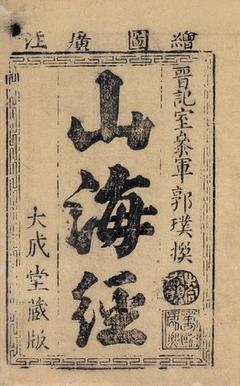 繪圖廣注
晋記室參軍郭璞撰
山海經
大成堂藏版